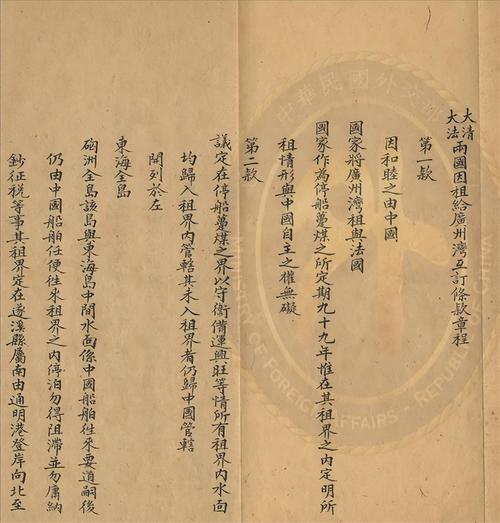 大清
大法
兩國因租給廣州灣互訂條款章程
第一款
因和睦之由中國
國家將廣州灣租與法國
國家作為停船躉煤之所定期九十九年惟在其租界之內定明所
租情形與中國自主之權無礙
第二款
議定在停船躉煤之界以守衛備運興旺等情所有租界內水面
均歸入租界內管轄其未入租界者仍歸中國管轄
開列於左
東海全島
硇洲全島該島與東海島中間水面係中國船舶往來要道嗣後
仍由中國船舶任便徃來租界之內停泊勿得阻滯並勿庸納
鈔征稅等事其租界定在遂溪縣屬南由通明港登岸向北至
中華民國外交
OF FOREIGN AFFAIRS REPUBLIC